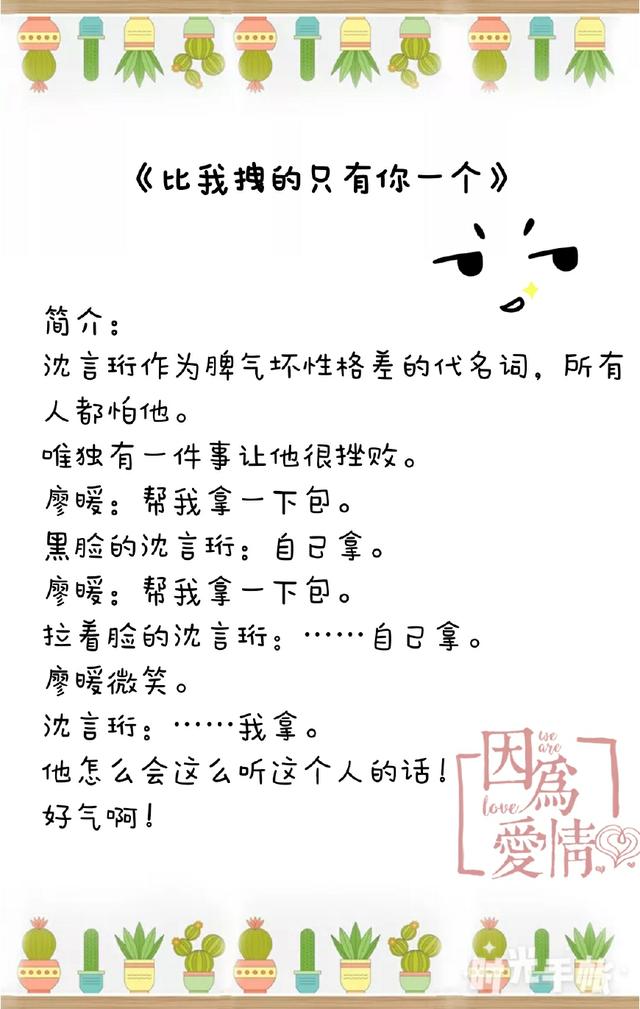 《比我拽的只有你一个》
简介：
沈言珩作为脾气坏性格差的代名词，所有
人都怕他。
唯独有一件事让他很挫败。
廖暖：帮我拿一下包。
黑脸的沈言珩：自己拿。
廖暖：帮我拿一下包。
拉着脸的沈言珩：……自己拿。
廖暖微笑。
沈言珩：……我拿。
他怎么会这么听这个人的话！
好气啊！
因為
we are
love
愛情
时光手帐